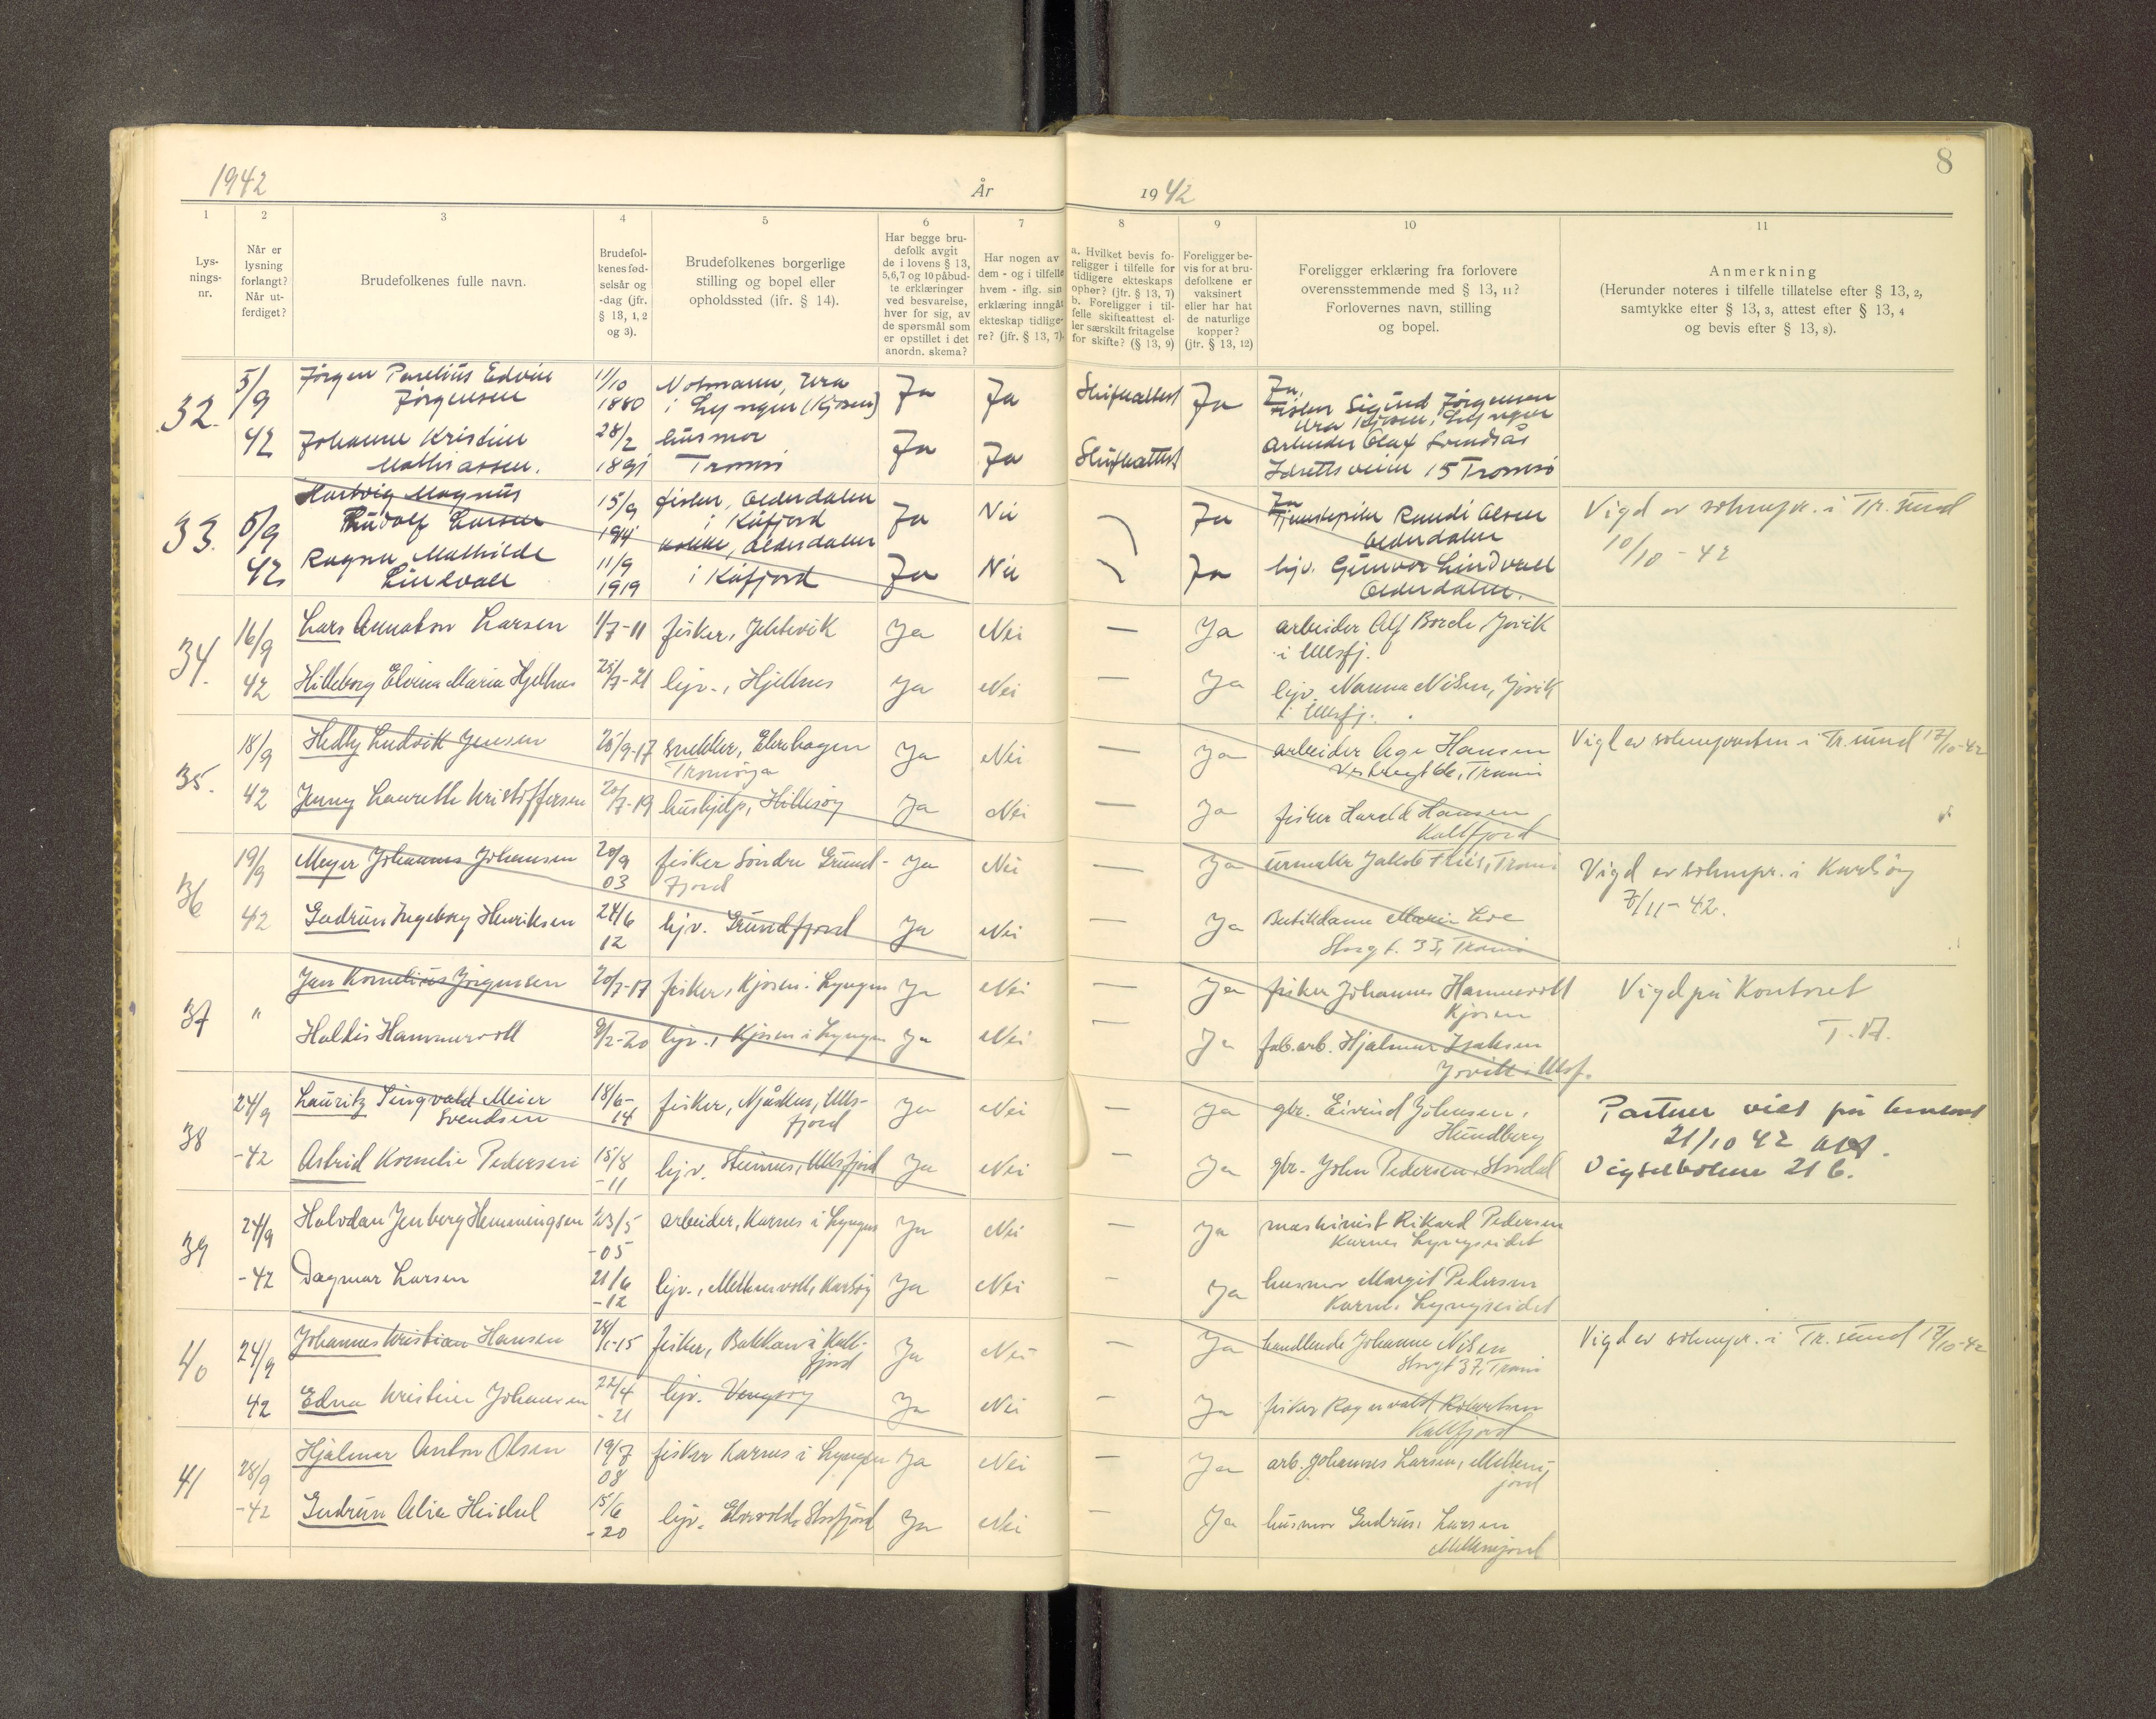 1942
År
1942
8
1
2
3
4
5
6
7
8
9
10
11
Lys-
nings-
nr.
Når er
lysning
forlangt?
Når ut-
ferdiget?
Brudefolkenes fulle navn.
Brudefol-
kenes fød-
selsår og
-dag (jfr.
§ 13, 1, 2
og 3).
Brudefolkenes borgerlige
stilling og bopel eller
opholdssted (ifr. § 14).
Har begge bru-
defolk avgit
de i lovens § 13,
5,6,7 og 10 påbud-
te erklæringer
ved besvarelse,
hver for sig, av
de spørsmål som
er opstillet i det
anordn. skema?
Har nogen av
dem - og i tilfelle
hvem - iflg. sin
erklæring inngåt
ekteskap tidlige-
re? (jfr. § 13, 7).
a. Hvilket bevis fo-
religger i tilfelle for
tidligere ekteskaps
ophør? (jfr. § 13, 7)
b. Foreligger i til-
felle skifteattest el-
ler særskilt fritagelse
for skifte? (§ 13, 9)
Foreligger be-
vis for at bru-
defolkene er
vaksinert
eller har hat
de naturlige
kopper?
(jfr. § 13, 12)
Foreligger erklæring fra forlovere
overensstemmende med § 13, 11?
Forlovernes navn, stilling
og bopel.
Anmerkning
(Herunder noteres i tilfelle tillatelse efter § 13, 2,
samtykke efter § 13, 3, attest efter § 13, 4
og bevis efter § 13, 8).
32.
5/9
42
Jørgen Edvin
Jørgensen
11/10
1880
Ura
i Lyngen (Kjosen)
Ja
Ja
Skifteattest
Ja
Ja.
Fisker Sigurd Jørgensen
Ura Kjosen, Lyngen
Johanne Kristine
Mathiassen.
28/2
1891
husmor
Tromsø
Ja
Ja
Skifteattest
Arbeider Olaf
15 Tromsø
33.
5/9
42
Hartvig Magnus
Rudolf Larsen
15/9
1914
fisker, Olderdalen
i Kåfjord
Ja
Nei
Ja
Ja
Randi Olsen
Olderdalen
Vigd av soknepr. i Tr.sund
10/10 - 42
Ragna Mathilde
Lindvall
11/9
1919
Olderdalen
i Kåfjord
Ja
Nei
Ja
hjv. Gunvor Lindvall
Olderdalen.
34.
16/9
42
Lars Annaton Larsen
1/7-11
fisker,
Ja
Nei
—
Ja
arbeider Alf Jøvik
i Ullsfj.
Hilleborg Elvina Maria Hjellnes
25/7-21
hjv., Hjellnes
Ja
Nei
—
Ja
hjv. Nanna Nilsen, Jøvik
i Ullsfj.
35.
18/9
42
Hedly Ludvik Jensen
25/9-17
snekker, Elvehagen
Tromsøya
Ja
Nei
—
Ja
arbeider Åge Hansen
Tromsø
Vigd av soknepresten i Tr.sund 17/10-42
Jenny Laurette Kristoffersen
20/7-19
hushjelp, Hillesøy
Ja
Nei
—
Ja
fisker Harald Hansen
Kallfjord
36
19/9
42
Meyer Johannes Johansen
20/9
03
fisker Søndre Grunn-
fjord
Ja
Nei
—
Ja
urmaker Jakob Friis, Tromsø
Vigd av soknepr. i Karlsøy
8/11 - 42.
Gudrun Ingeborg Henriksen
24/6
12
hjv. Grunnfjord
Ja
Nei
Ja
Butikdame Marie
Storgt. 33, Tromsø
37
"
Jan Kornelius Jørgensen
20/7-17
fisker, Kjosen i Lyngen
Ja
Nei
—
Ja
fisker Johannes Hammervoll
Kjosen
Vigd på Kontoret
Haldis Hammervoll
9/2-20
hjv., Kjosen i Lyngen
Ja
Nei
—
Ja
fab.arb. Hjalmar Isaksen
Jøvik i Ullsf.
38
24/9
-42
Lauritz Singvald Meier
Svendsen
18/6-
14
fisker, Njåskus, Ulls-
fjord
Ja
Nei
—
Ja
gbr. Eivind Johnsen,
Hundberg
viet på
21/10 42
Astrid Kornelie Pedersen
15/8
-11
hjv. Steinnes, Ullsfjord
Ja
Nei
—
Ja
gbr. John Pedersen,
Vigselboken 21 b.
39
24/9
-42
Halvdan Jenberg Hemmingsen
23/5
-05
arbeider, Karnes i Lyngen
Ja
Nei
—
Ja
maskinist Rikard Pedersen
Karnes Lyngseidet
Dagmar Larsen
21/6
-12
hjv., Karlsøy
Ja
Nei
—
Ja
husmor Margit Pedersen
Karnes Lyngseidet
40
24/9
42
Johannes Kristian Hansen
28/1-15
fisker, Bakkan i Kall-
fjord
Ja
Nei
—
Ja
handlende Johanne Nilsen
Storgt 37, Tromsø
Vigd av soknepr. i Tr.sund 17/10-42
Edna Kristine Johansen
22/4
-21
hjv. Vengsøy
Ja
Nei
—
Ja
fisker Ragnvald Robertsen
Kallfjord
41
28/9
-42
Hjalmar Anton Olsen
19/7
08
fisker Karnes i Lyngen
Ja
Nei
—
Ja
arb. Johannes Larsen,
Gudrun Heiskel
15/6
-20
hjv. Elvevold, Storfjord
Ja
Nei
—
Ja
husmor Gudrun Larsen